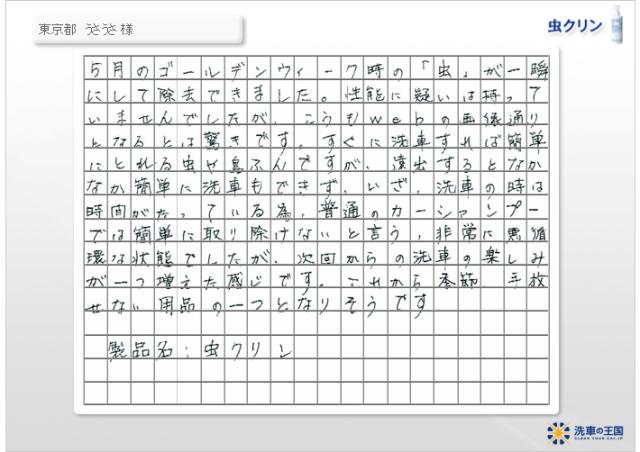 東京都 うさうさ 様
虫クリン
5月のゴールデンウィーク時の「虫」が一瞬
にして除去できました。性能に疑いは持って
いませんでしたが、こうもwebの画像通り
となるとは驚きです。すぐに洗車すれば簡単
にとれる虫や鳥ふんですが、遠出するとなか
なか簡単に洗車もできず、いざ、洗車の時は
時間がたっている為、普通のカーシャンプー
では簡単に取り除けないと言う、非常に悪循
環な状態でしたが、次回からの洗車の楽しみ
が一つ増えた感じです。これから季節 手放
せない 用品の一つとなりそうです
製品名:虫クリン
洗車の王国
CLEAN YOUR CAR.JP